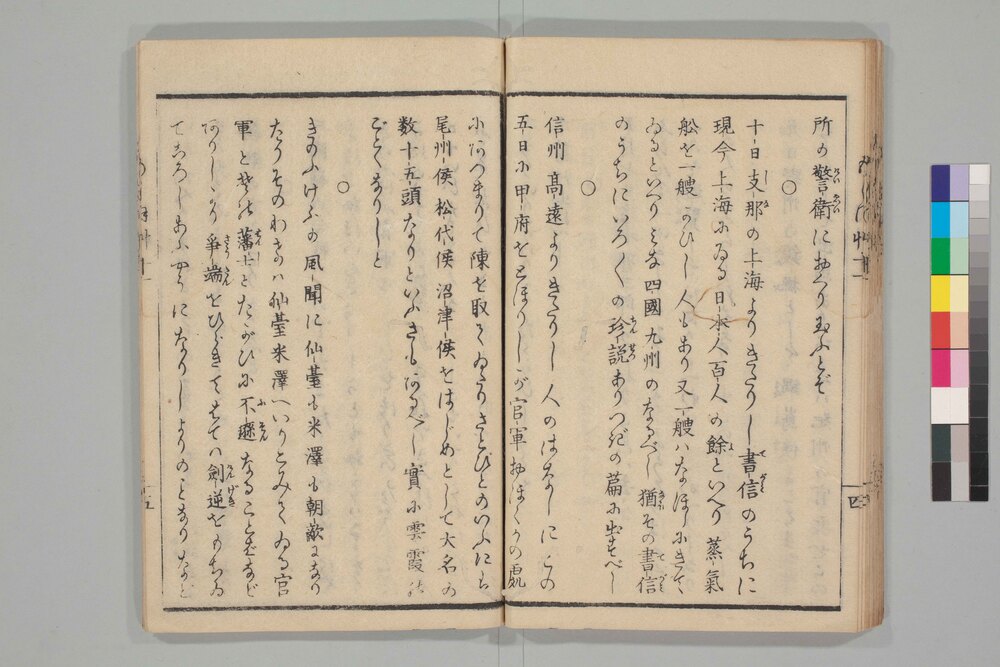 所の警衛に赴くり玉ふとぞ
○
十日支那の上海よりきたりし書信のうちに
現今上海にゐる日本人百人の餘といへり 蒸氣
舩を一艘かひし人もあり又一艘ハなほしにきて
ゐるといへりミな四國九州のなるべし 猶その書信
のうちにいろ〱の珍説ありつぎの篇に出すべし
○
信州高遠よりきたりし人のはなしにこの
五日に甲府をとほりしが官軍おほくかの處
にあつまりて陳を取てゐたりさとびとのいふにも
尾州侯松代侯沼津侯をはじめとして大名の
数十五頭なりといふさもあるべし實に雲霞の
ごとくなりしと
○
きのふけふの風聞に仙臺も米澤も朝敵になり
たりそのわけハ仙臺米澤へいりこみてゐる官
軍とその藩士とたがひに不遜なることばなど
ありしより爭端をひらきてはてハ劍逆をもちゐ
てころしあふやうになりしよりのことなりなど
四
五